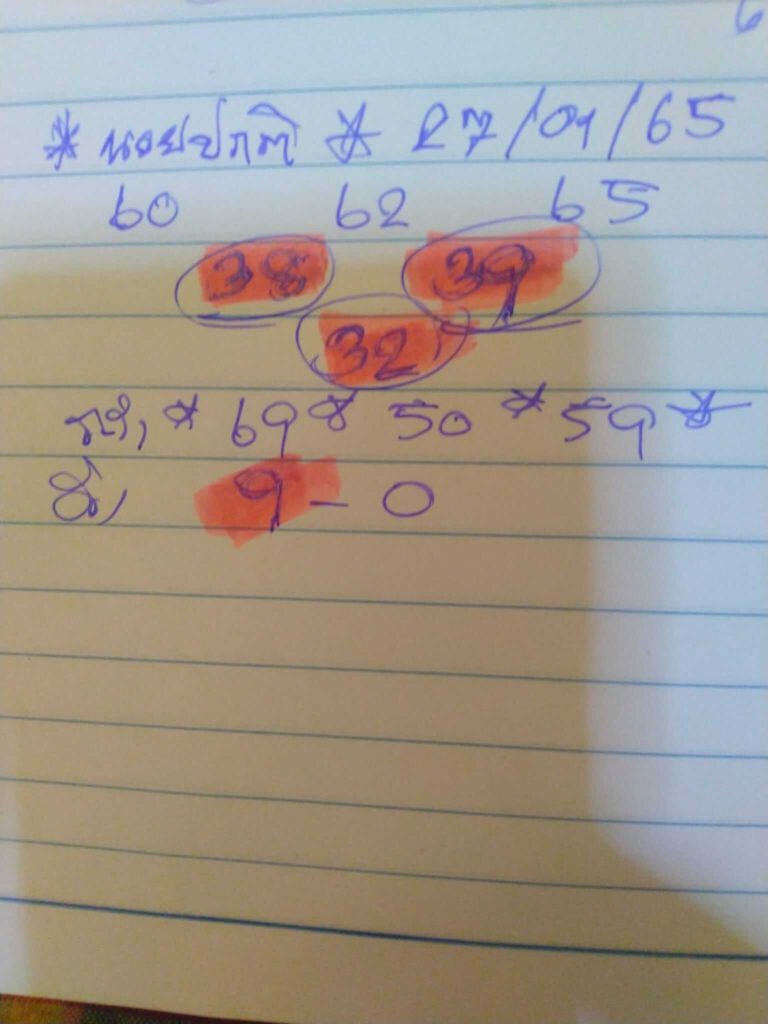 6
* ฮานอยปกติ * 27/01/65
60 62 65
38 39
32
* 69 * 50 * 59 *
9 - 0